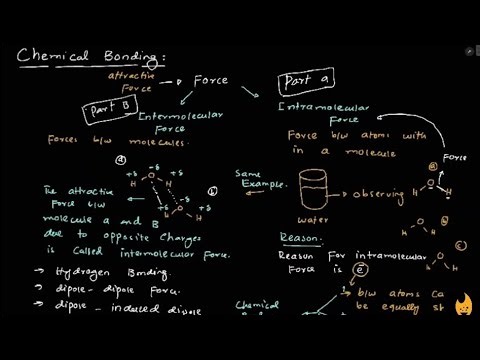 Chemical Bonding:
attractive
Force
Force
Part B
Part a
Entermolecular
Force
Intramolecular
Force
Forces b/w molecules.
Force b/w atoms with
in a molecule
Force
a
a
-δ
-δ
+δ
O
H
H
+δ
-δ
O
+δ
H
H
+δ
b
The attractive
Force b/w
molecule a and B
due to opposite charges
is Called intermolecular Force.
Same
Example.
observing
water
O
H
H
O
H
H
b
O
H
H
c
Reason.
Reason For intramolecular
Force is e
→ Hydrogen Bonding.
→ dipole - dipole Force.
→ dipole - induced dipole
Chemical
→ b/w atoms Ca
be equally sh